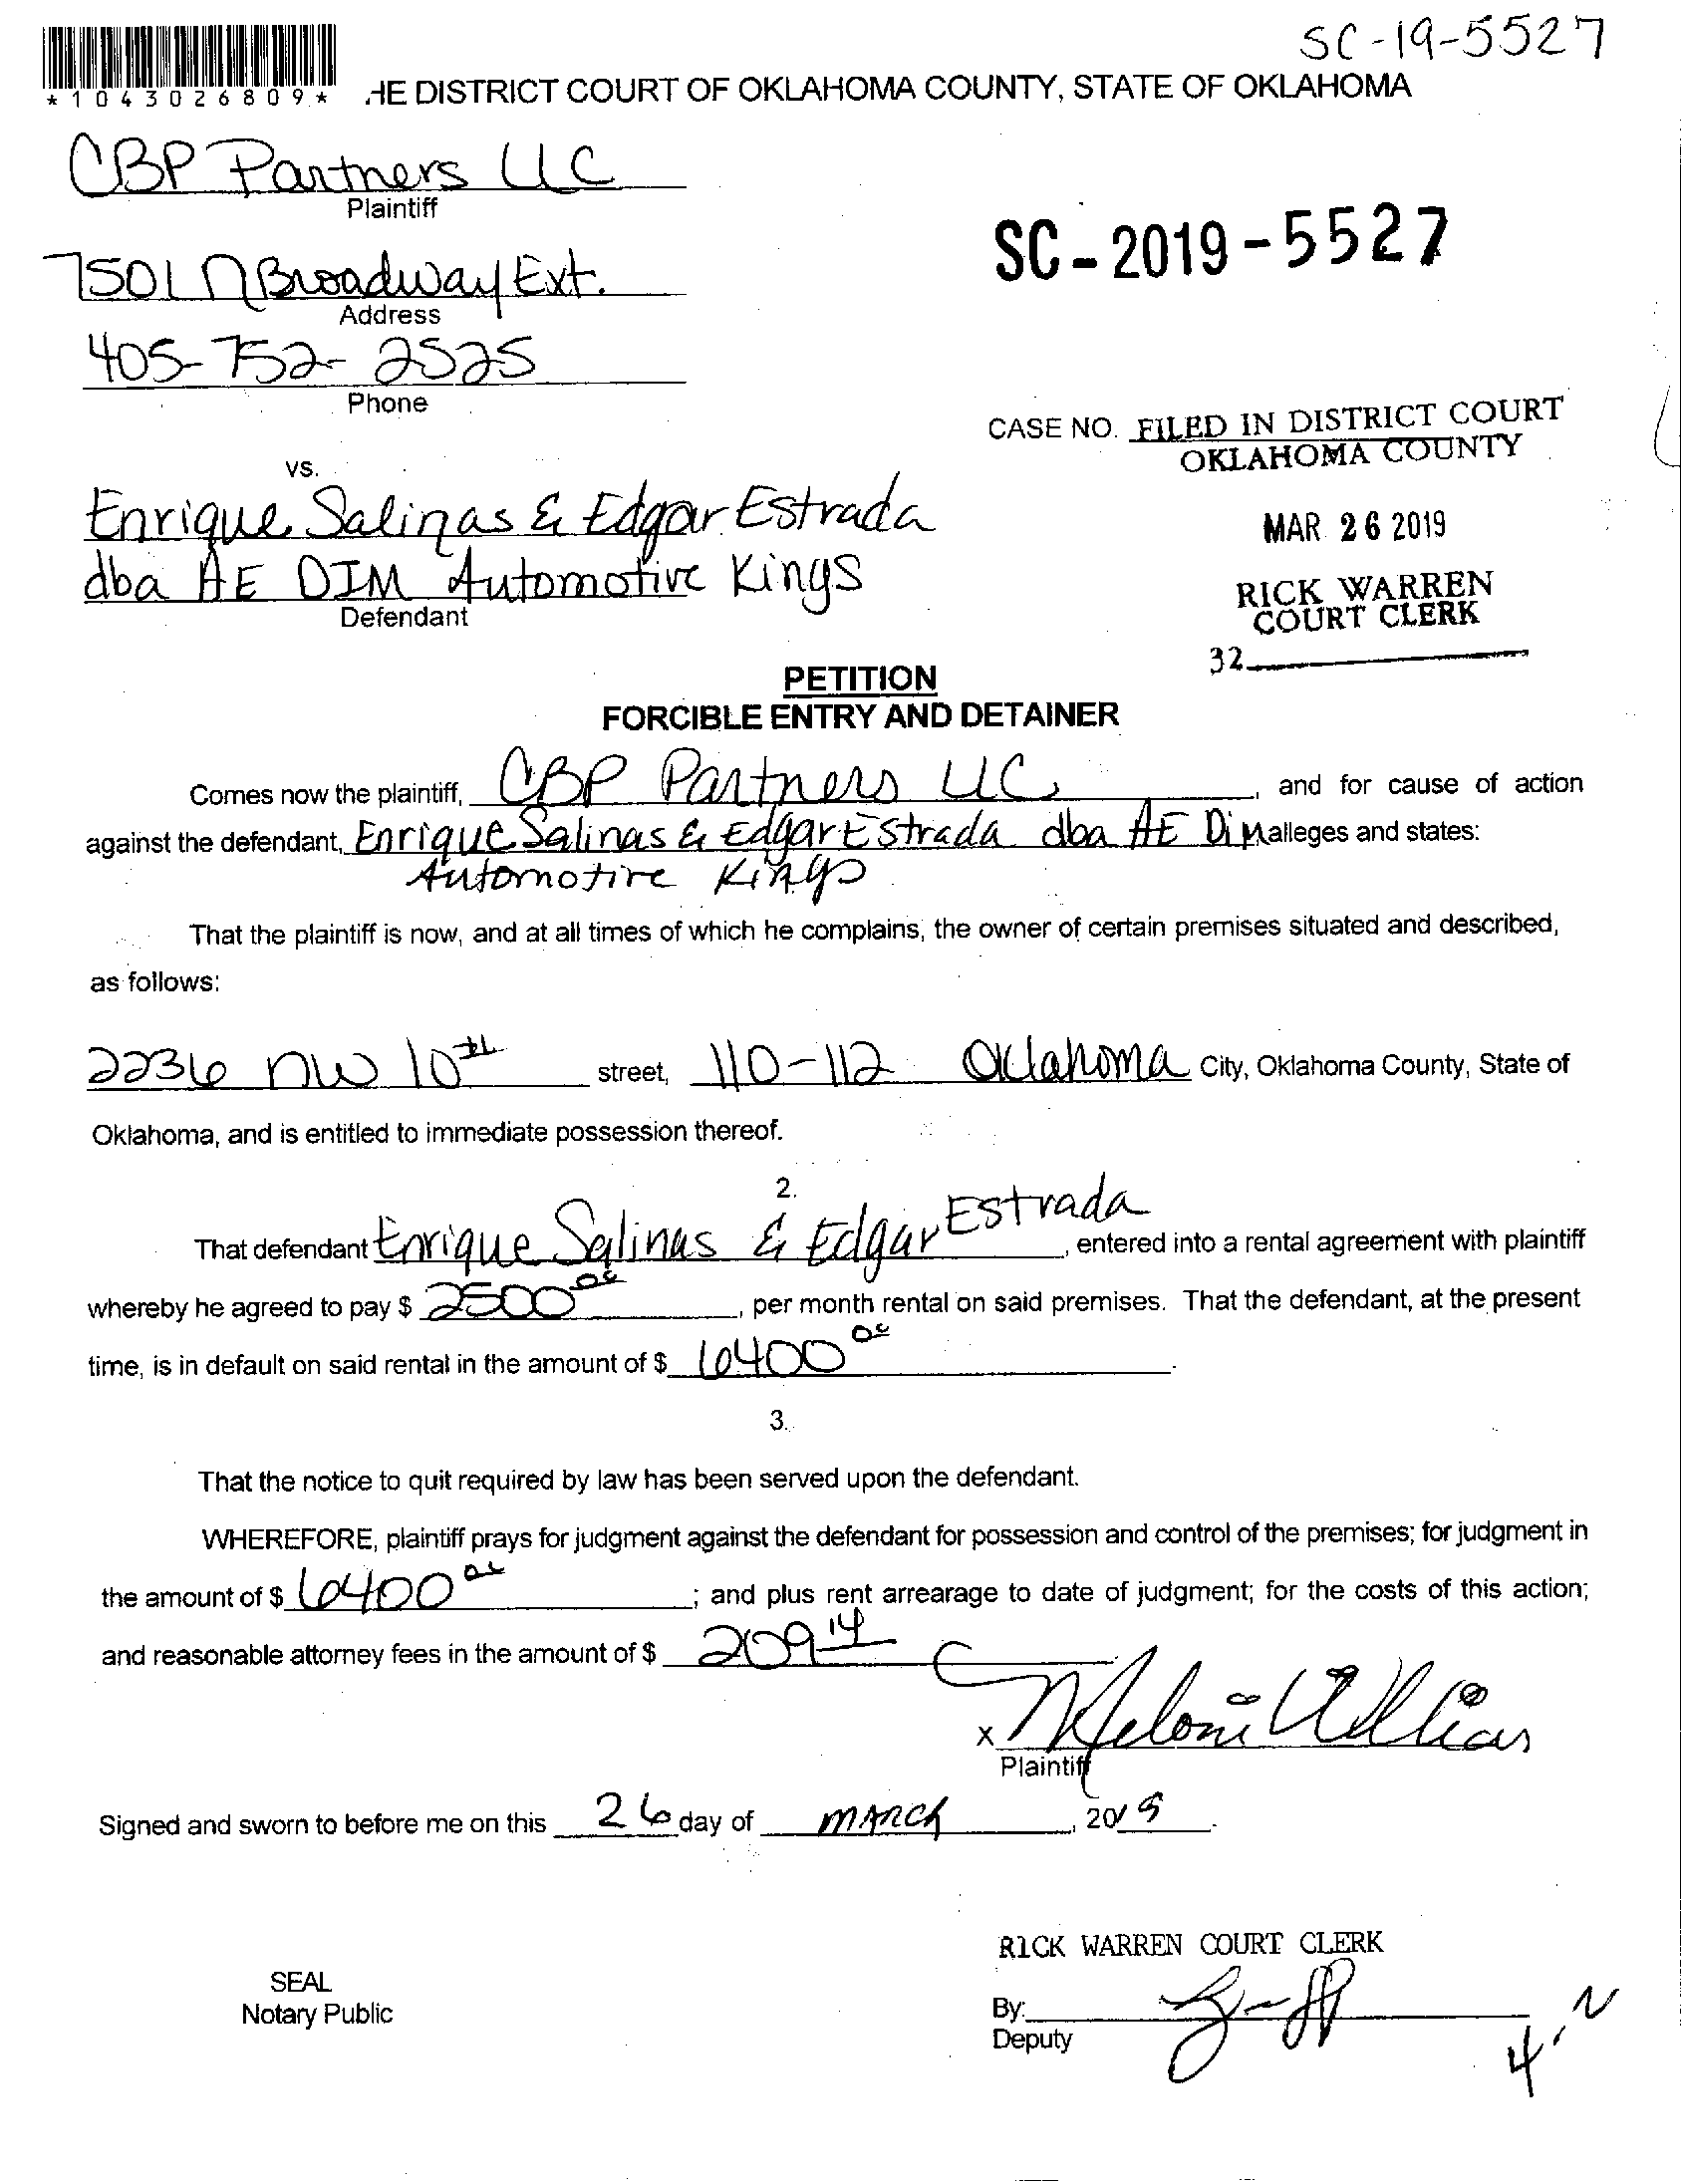 SC-19-5527
*1043026809*
HE DISTRICT COURT OF OKLAHOMA COUNTY, STATE OF OKLAHOMA
CBP Partners LLC
Plaintiff
7501 N Broadway Ext.
Address
SC-2019-5527
405-752-2525
Phone
CASE NO. FILED IN DISTRICT COURT
OKLAHOMA COUNTY
vs.
Enrique Salinas & Edgar Estrada
MAR 26 2019
dba AE DIM Automotive Kings
Defendant
RICK WARREN
COURT CLERK
32
PETITION
FORCIBLE ENTRY AND DETAINER
Comes now the plaintiff, CBP Partners LLC, and for cause of action
against the defendant, Enrique Salinas & Edgar Estrada dba AE Dim alleges and states:
Automotive Kings
That the plaintiff is now, and at all times of which he complains, the owner of certain premises situated and described,
as follows:
2236 NW 10th street, 110-112 Oklahoma City, Oklahoma County, State of
Oklahoma, and is entitled to immediate possession thereof.
2.
That defendant Enrique Salinas & Edgar Estrada, entered into a rental agreement with plaintiff
whereby he agreed to pay $ 2500 00, per month rental on said premises. That the defendant, at the present
time, is in default on said rental in the amount of $ 6400 00.
3.
That the notice to quit required by law has been served upon the defendant.
WHEREFORE, plaintiff prays for judgment against the defendant for possession and control of the premises; for judgment in
the amount of $ 6400 00; and plus rent arrearage to date of judgment; for the costs of this action;
and reasonable attorney fees in the amount of $ 209 14
x Meloni Williams
Plaintiff
Signed and sworn to before me on this 26 day of MARCH, 2019.
RICK WARREN COURT CLERK
SEAL
Notary Public
By:
Deputy